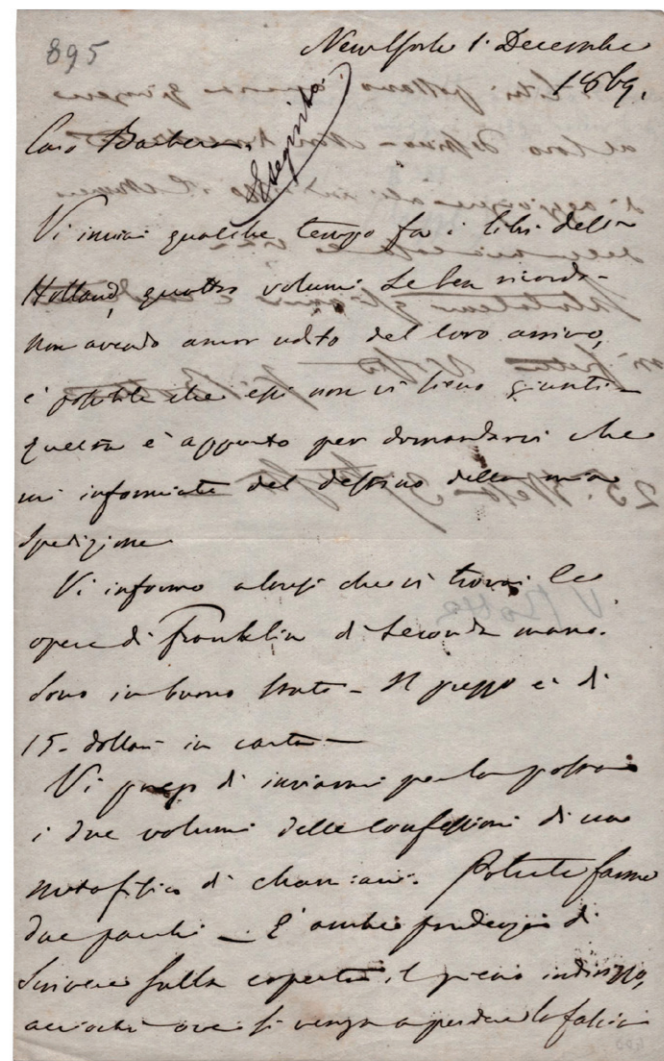 895
New York 1 Decembre
1869.
Caro Barbera.
Eseguita
Vi inviai qualche tempo fa i libri della
Holland, quattro volumi se ben ricordo -
non avendo ancor udito del loro arrivo,
è possibile che essi non vi sieno giunti -
questa è appunto per domandarvi che
mi informiate del destino della mia
spedizione
Vi informo altresì che vi trovai le
opere di Franklin di seconda mano.
Sono in buono stato - Il prezzo è di
15 - dollari in carta -
Vi prego di inviarmi per la posta
i due volumi delle Confessioni di un
metafisico di Mamiani. Potete farne
due pacchi - E' anche prudenza di
scrivere sulla coperta il pieno indirizzo,
acciochè ove si venga a perdere la fascia